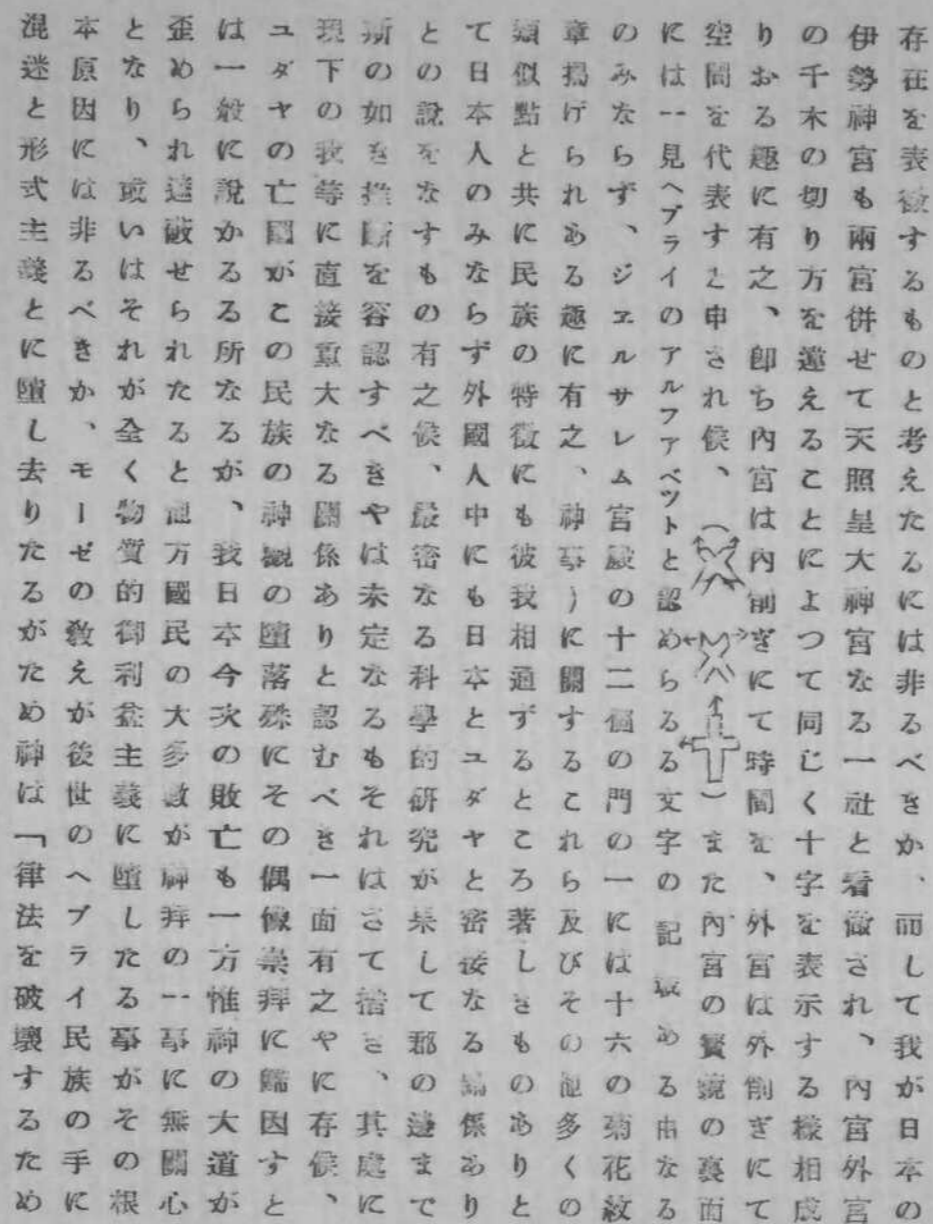 存在を表徴するものと考えたるには非るべきか、而して我が日本の
伊勢神宮も兩宮併せて天照皇大神宮なる一社と看做され、內宮外宮
の千木の切り方を違えることによつて同じく十字を表示する樣相成
りおる趣に有之、卽ち內宮は內削ぎにて時間を、外宮は外削ぎにて
空間を代表すと申され候、（　）また內宮の寳鏡の裏面
には一見ヘブライのアルファベツトと認めらるる文字の記載ある由なる
のみならず、ジエルサレム宮殿の十二個の門の一には十六の菊花紋
章揭げられある趣に有之、神事）に關するこれら及びその他多くの
類似點と共に民族の特徵にも彼我相通ずるところ著しきものありと
て日本人のみならず外國人中にも日本とユダヤと密接なる關係あり
との說をなすもの有之候、嚴密なる科學的硏究が果して那の邊まで
斯の如き推斷を容認すべきやは未定なるもそれはさて措き、其處に
現下の我等に直接重大なる關係ありと認むべき一面有之やに存候、
ユダヤの亡國がこの民族の神觀の墮落殊にその偶像崇拜に歸因すと
は一般に說かるる所なるが、我日本今次の敗亡も一方惟神の大道が
歪められ遮蔽せられたると他方國民の大多數が神拜の一事に無關心
となり、或いはそれが全く物質的御利益主義に墮したる事がその根
本原因には非るべきか、モーゼの敎えが後世のヘブライ民族の手に
混迷と形式主義とに墮し去りたるがため神は「律法を破壞するため